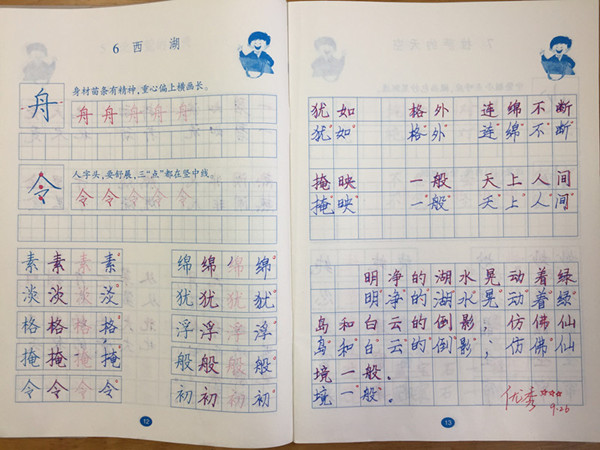 6 西 湖
舟
身材苗条有精神，重心偏上横画长。
舟 舟 舟 舟 舟
令
人字头，要舒展，三“点”都在竖中线。
令 令 令 令 令
素 素 素 素 绵 绵 绵 绵
淡 淡 淡 淡 犹 犹 犹 犹
格 格 格 格 浮 浮 浮 浮
掩 掩 掩 掩 般 般 般 般
令 令 令 令 初 初 初 初
12
犹如 格外 连绵不断
犹如 格外 连绵不断
掩映 一般 天上人间
掩映 一般 天上人间
明净的湖水晃动着绿
明净的湖水晃动着绿
岛和白云的倒影；仿佛仙
岛和白云的倒影；仿佛仙
境一般。
境一般。
优秀☆☆☆
9.26
13